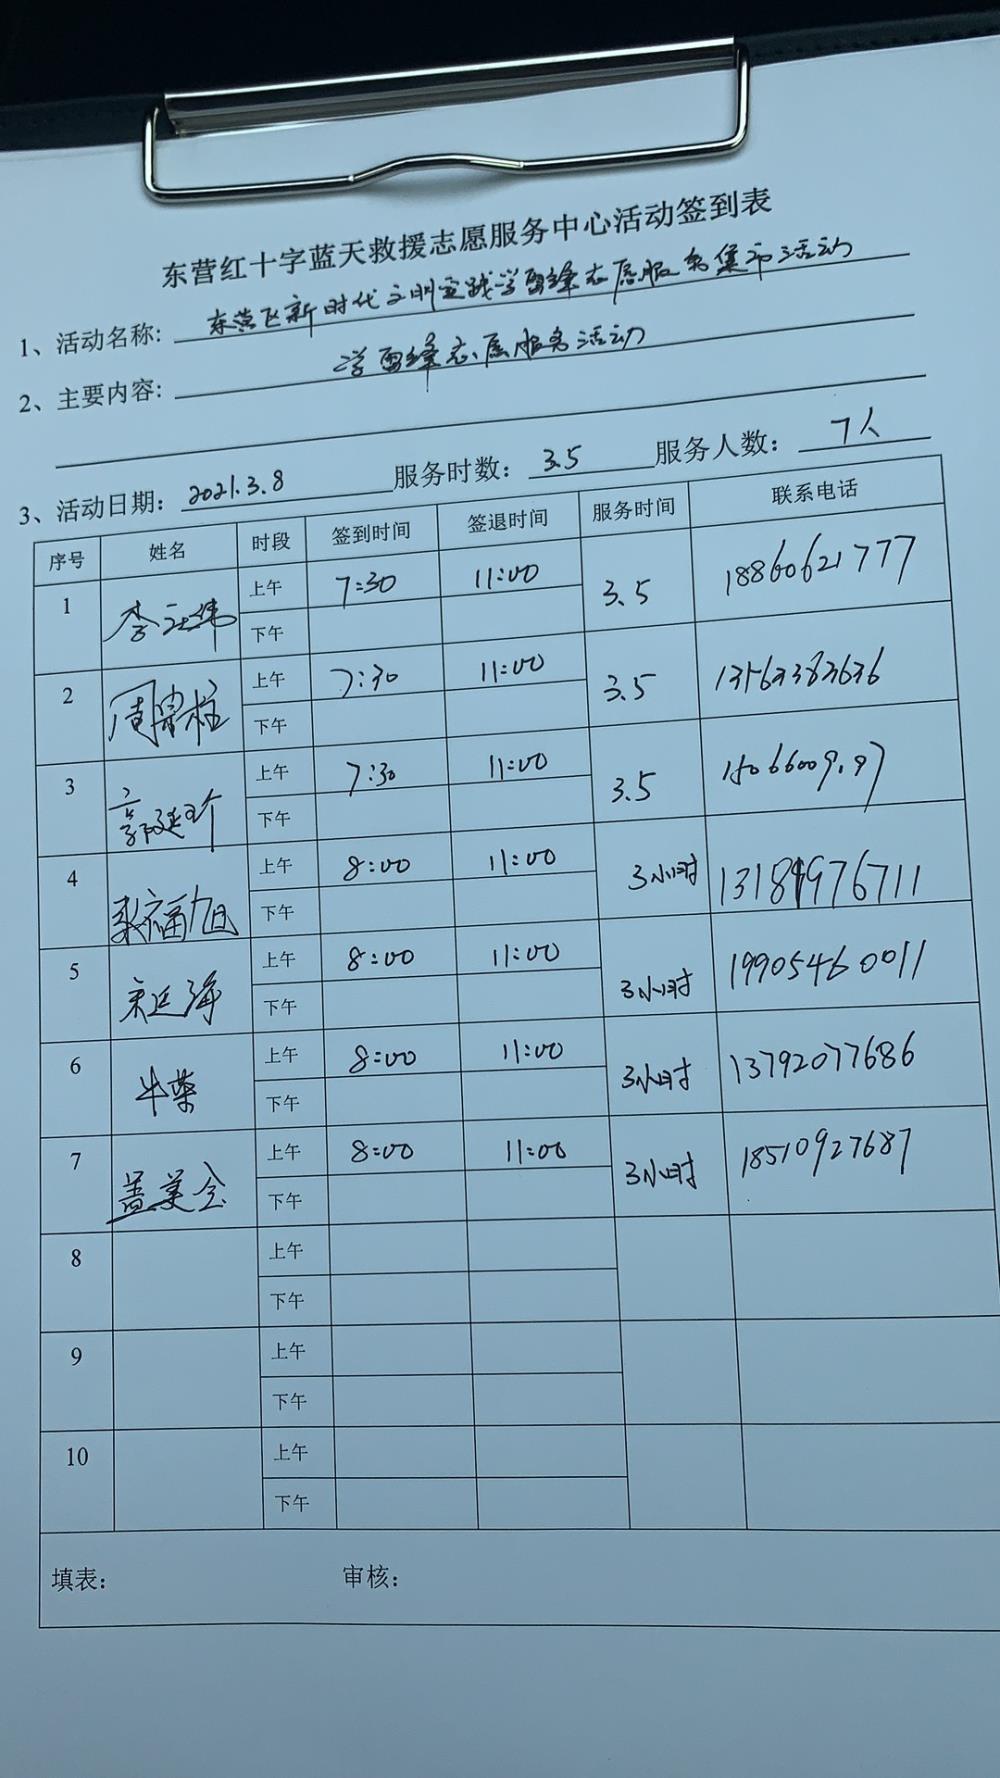 东营红十字蓝天救援志愿服务中心活动签到表
1、活动名称: 东营区新时代文明实践学雷锋志愿服务集市活动
2、主要内容: 学雷锋志愿服务活动
3、活动日期: 2021.3.8 服务时数: 3.5 服务人数: 7人
序号 姓名 时段 签到时间 签退时间 服务时间 联系电话
1 上午 7:30 11:00 3.5 18860621777
下午
2 周曾柱 上午 7:30 11:00 3.5 13563383636
下午
3 上午 7:30 11:00 3.5
下午
4 福旭 上午 8:00 11:00 3小时 13181976711
下午
5 宋延海 上午 8:00 11:00 3小时 19905460011
下午
6 牛荣 上午 8:00 11:00 3小时 13792077686
下午
7 盖美全 上午 8:00 11:00 3小时 18510927687
下午
8 上午
下午
9 上午
下午
10 上午
下午
填表: 审核: